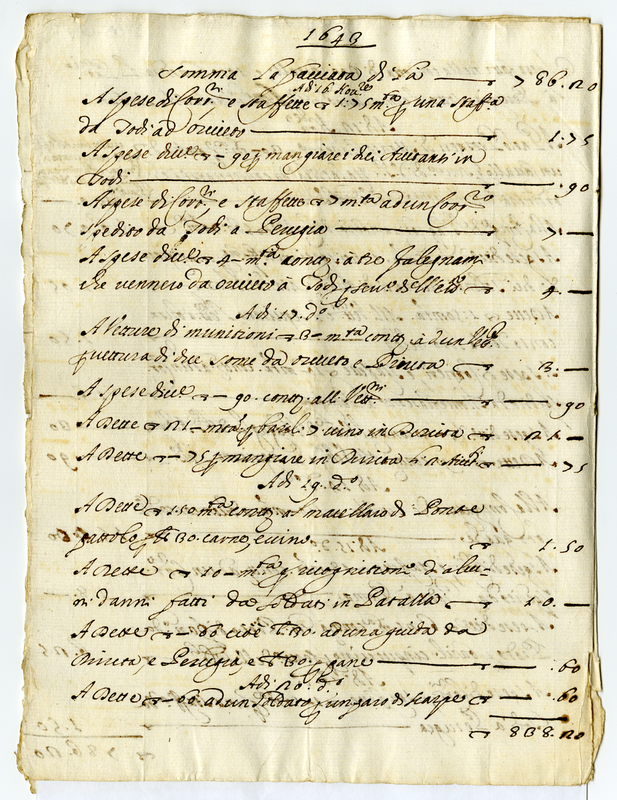 1643
Somma La facciata di là — 786.20
Adi 16 Nov.e
A spese di Corr.ri e staffette 1:75 m.ta p una staffa
da Todi ad orvieto — 1.75
A spese div.e — 90 p mangiare i dei in
Todi — .90
A spese di Corr.ri e staffette 7 m.ta ad un Corr.ro
spedito da Todi a Perugia — 7. —
A spese div.e 4 — m.ta cont. à tre falegnami
che vennero da orvieto à Todi p — 4. —
Adi 17 d.o
A Vetture di munitioni 13 — m.ta cont. à d un Vett.
p vettura di dice some da orvieto e Deruta — 13. —
A spese div.e — 90. cont. all Vett. — .90
A Dette 21 — m.ta p baril. 7 vino in Deruta — 21. —
A Dette — 75 p mangiare in Deruta — .75
Adi 19. d.o
A Dette 1.50 m.ta cont. al macellaro di Ponte
pattolo p 30. carne, e vino — 1.50
A Dette 10 — m.ta p recognitione d'alcu-
ni danni fatti da soldati in — 10. —
A Dette — 60 cioè 30. ad una guida da
Diruta, e Perugia, e 30. p pane — .60
Adi 20. d.o
A Dette — 60 ad un soldato p un paro di scarpe — .60
838.20